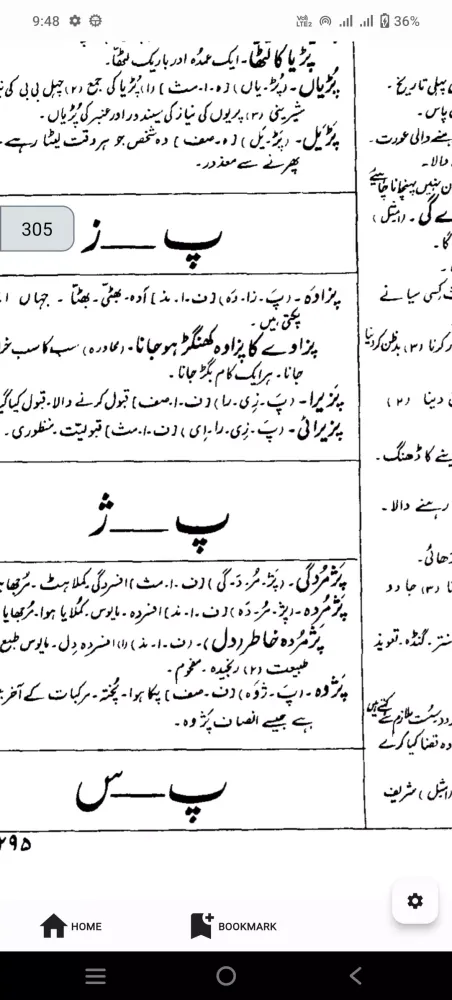 9:48
Vo)) LTE2 36%
پڑیا کا لٹھا۔ ایک عمدہ اور باریک لٹھا۔
پڑیاں۔ (پُڑ۔یاں) [ہ۔ا۔مث] (۱) پُڑیا کی جمع (۲)
شیرینی (۳) پریوں کی نیاز کی سیندور اور عنبر کی پُڑیاں۔
پڑیل۔ (پَڑ۔یَل) [ہ۔صف] وہ شخص جو ہر وقت لیٹا رہے۔
پھرنے سے معذور۔
305
پ ــــ ز
پزاوہ۔ (پَ۔زا۔وَہ) [ف۔ا۔مذ] آوہ۔ بھٹی۔ بھٹا۔ جہاں
پکتی ہیں۔
پزاوے کا پزاوہ کھنگڑ ہو جانا۔ (محاورہ) سب کا سب
جانا۔ ہر ایک کام بگڑ جانا۔
پزیرا۔ (پَ۔زی۔را) [ف۔ا۔صف] قبول کرنے والا۔ قبول کیا
پزیرائی۔ (پَ۔زی۔را۔ای) [ف۔ا۔مث] قبولیت۔ منظوری۔
پ ــــ ژ
پژمُردگی۔ (پَژ۔مُر۔دَ۔گی) [ف۔ا۔مث] افسردگی۔ کملاہٹ۔
پژمُردہ۔ (پژ۔مُر۔دَہ) [ف۔ا۔مذ] افسردہ۔ مایوس۔ کُملایا ہوا۔ مُرجھایا
پژمُردہ خاطر (دل)۔ (ف۔ا۔مذ) (۱) افسردہ دِل۔ مایوس
طبیعت (۲) رنجیدہ۔ مغموم۔
پژوہ۔ (پَ۔ژوہ) [ف۔صف] پکا ہوا۔ پُختہ۔ مرکبات کے آخر
ہے جیسے انصاف پژوہ۔
پ ــــ س
۲۹۵
پہلی تاریخ۔
پاس۔
والی عورت۔
والا۔
نہیں پہنچانا چاہیئے
گی۔ (مثل)
گا۔
کسی سیانے نے
کرنا (۳) بدظن کر دینا
دینا (۲)
کا ڈھنگ۔
رہنے والا۔
(۳) جادو
گنڈہ۔ تعویذ
(مثل) شریف
HOME
BOOKMARK